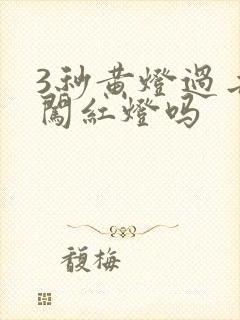 3秒黄燈過
闖紅燈吗
馥梅